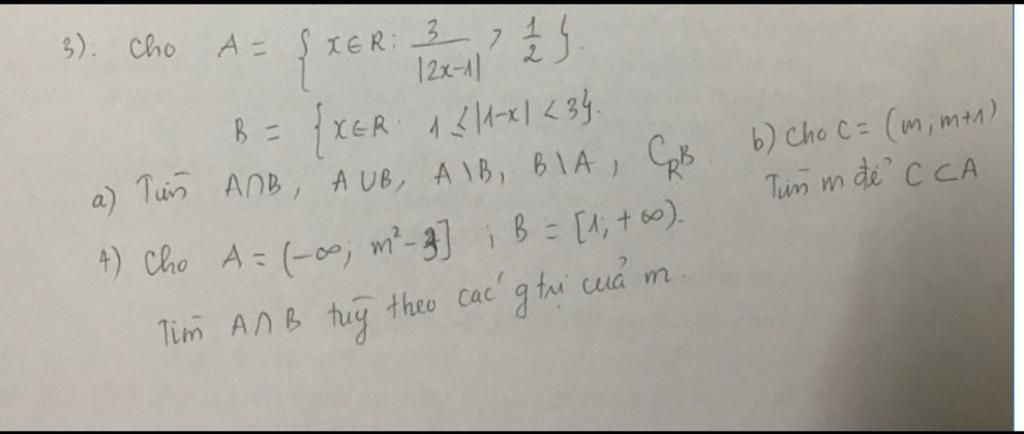 3). Cho A = { x ∈ R: 3/|2x-1| > 1/2 }.
B = { x ∈ R: 1 ≤ |1-x| < 3}.
a) Tìm A∩B, A∪B, A\B, B\A, C_R B.
b) Cho C = (m; m+1)
Tìm m để C ⊂ A
4) Cho A = (-∞; m²-3] ; B = [1; +∞).
Tìm A∩B tuỳ theo các g trị của m.